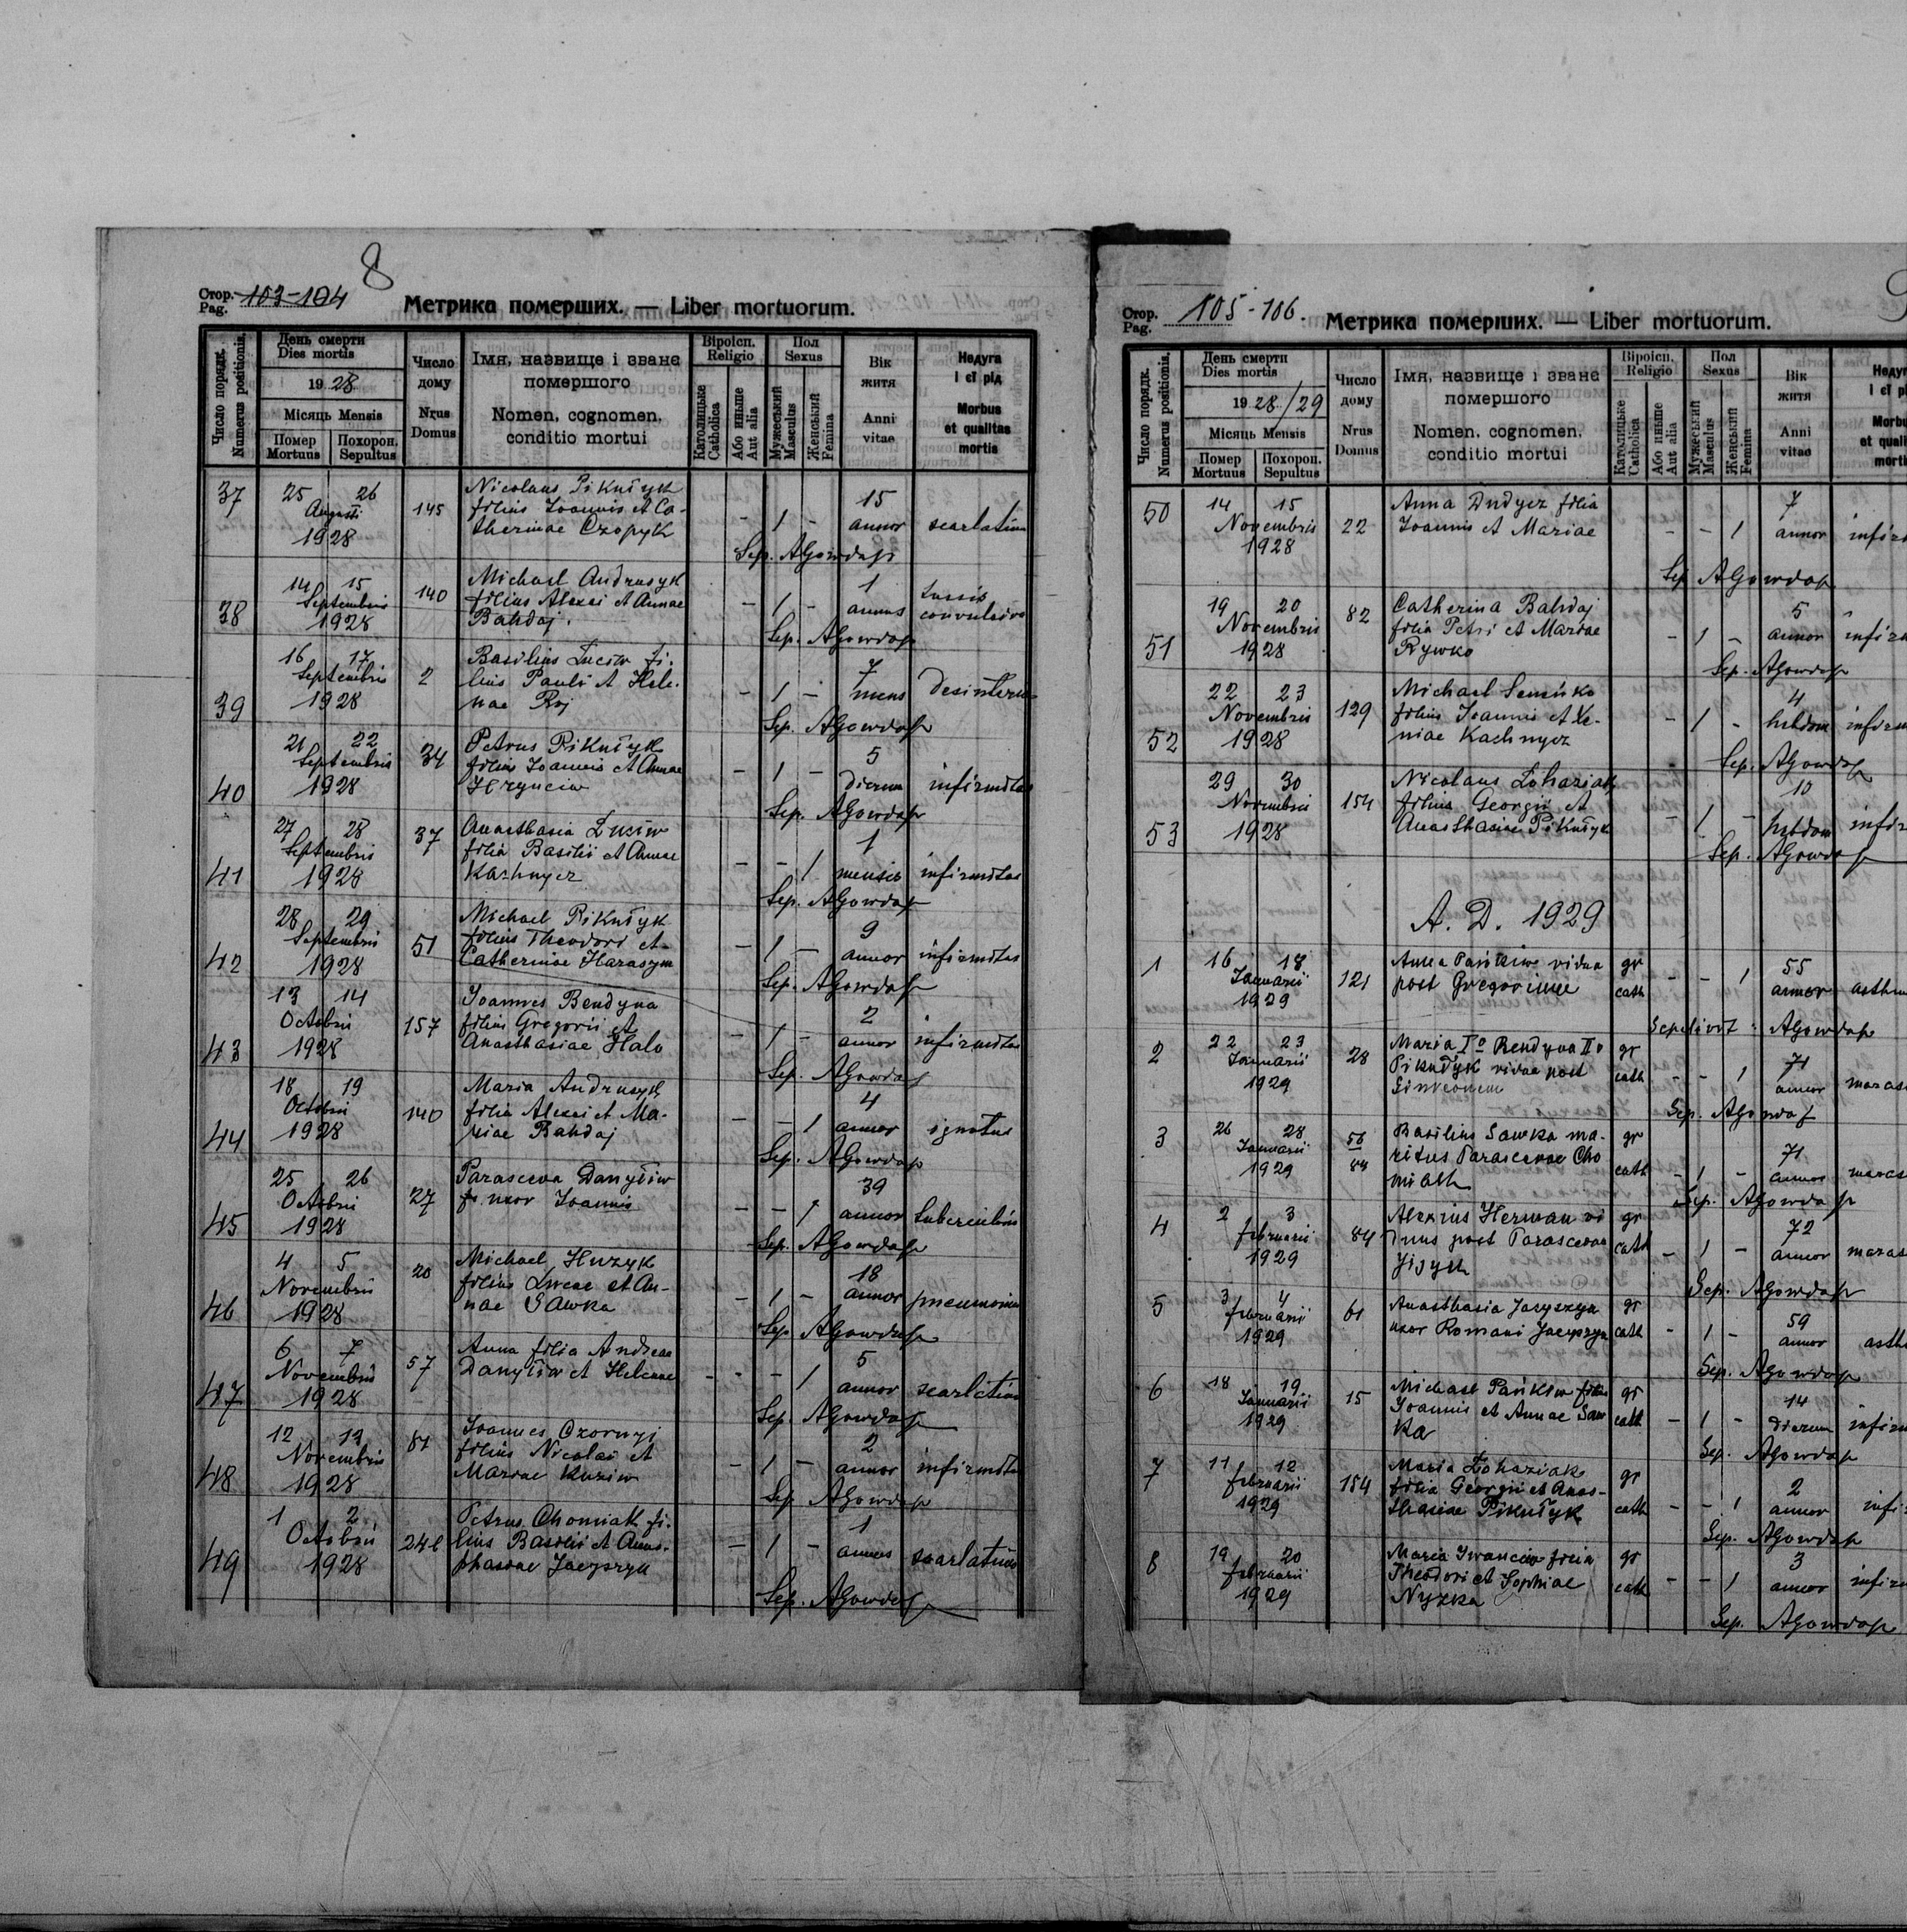 8
Стор. Pag. 103-104
Метрика померших. — Liber mortuorum.
Число порядк. Numerus positionis.
День смерти Dies mortis
19 28
Місяць Mensis
Помер Mortuus
Похорон. Sepultus
Число дому Nrus Domus
Імя, назвище і званє помершого
Nomen, cognomen, conditio mortui
Віроісп. Religio
Католицьке Catholica
Або иньше Aut alia
Пол Sexus
Мужеський Masculus
Женський Femina
Вік житя Anni vitae
Недуга і єї рід
Morbus et qualitas mortis
37 25 26 145 Nicolaus Pikułyk 15
Augusti filius Joannis et Ca- - 1 - annor scarlatina
1928 therinae Czopyk
Sep. AGowdap
14 15 140 Michael Andrusyk 1 tussis
38 Septembris filius Alexei et Annae - 1 - annus convulsiva
1928 Bahdaj.
Sep. AGowdap
16 17 Basilius Luciw fi-
39 Septembris 2 lius Pauli et Hele- - 1 - mens
1928 nae Roj
Sep. AGowdap
21 22 34 Petrus Pikułyk 5
40 Septembris filius Joannis et Annae - 1 - dierum infirmitas
1928 Hrynciw
Sep. AGowdap
27 28 37 Anasthasia Luciw 1
41 Septembris filia Basilii et Annae - - 1 mensis infirmitas
1928 Kachnycz
Sep. AGowdap
28 29 51 Michael Pikułyk 9
42 Septembris filius Theodori et - 1 - annor infirmitas
1928 Catherinae Harasym
Sep. AGowdap
13 14 157 Joannes Bendyna 2
43 Octobris filius Gregorii et - 1 - annor infirmitas
1928 Anasthasiae Halo
Sep. AGowdap
18 19 140 Maria Andrusyk 4
44 Octobris filia Alexei et Ma- - - 1 annor ignotus
1928 riae Bahdaj
Sep. AGowdap
25 26 27 Parasceva Danyliw 39
45 Octobris uxor Joannis - - 1 annor tuberculosis
1928
Sep. AGowdap
4 5 20 Michael Huzyk 18
46 Novembris filius Lucae et An- - 1 - annor pneumonia
1928 nae Sawka
Sep. AGowdap
6 7 57 Anna filia Andreae 5
47 Novembris Danyliw et Helenae - - 1 annor scarlatina
1928
Sep. AGowdap
12 13 81 Joannes Czornyj 2
48 Novembris filius Nicolai et - 1 - annor infirmitas
1928 Mariae Kuziw
Sep. AGowdap
1 2 Petrus Chomiak fi- 1
49 Octobris lius Basilii et Anas- - 1 - annus scarlatina
1928 thasiae Jacyszyn
Sep. AGowdap
Стор. Pag. 105-106.
Метрика померших. — Liber mortuorum.
Число порядк. Numerus positionis.
День смерти Dies mortis
19 28/29
Місяць Mensis
Помер Mortuus
Похорон. Sepultus
Число дому Nrus Domus
Імя, назвище і званє помершого
Nomen, cognomen, conditio mortui
Віроісп. Religio
Католицьке Catholica
Або иньше Aut alia
Пол Sexus
Мужеський Masculus
Женський Femina
Вік житя Anni vitae
50 14 15 22 Anna Dudycz filia 7
Novembris Joannis et Mariae - - 1 annor
1928
Sep AGowdap
19 20 82 Catherina Bahdaj 5
51 Novembris filia Petri et Mariae - 1 - annor
1928 Rywko
Sep. AGowdap
22 23 129 Michael Senśko 4
52 Novembris filius Joannis et Xe- - 1 - hebdom
1928 niae Kachnycz
Sep. AGowdap
29 30 154 Nicolaus Lohaziak 10
53 Novembris filius Georgii et - 1 - hebdom
1928 Anasthasiae Pikułyk
Sep. AGowdap
A. D. 1929
1 16 18 121 Anna Pańkiw vidua gr 55
Januarii post Gregorium cath - - 1 annor
1929
Sepelivit: AGowdap
2 22 23 28 Maria I° Bendyna II° gr 71
Januarii Pikułyk vidua post cath - - 1 annor
1929 Simeonem
Sep. AGowdap
3 26 28 Basilius Sawka ma- gr 71
Januarii ritus Parascevae Cho cath - 1 - annor
1929 miak
Sep. AGowdap
4 2 3 84 Alexius Herman vi gr 72
februarii duus post Parasceva cath - 1 - annor
1929
Sep. AGowdap
5 3 4 61 Anasthasia Jacyszyn gr 59
februarii uxor Romani Jacyszyn cath - 1 - annor
1929
Sep. AGowdap
6 18 19 15 Michael Pańkiw filius gr 14
Januarii Joannis et Annae Saw cath - 1 - dierum
1929 ka
Sep. AGowdap
7 11 12 154 Maria Lohaziak gr 2
februarii filia Georgii et Anas- cath - - 1 annor
1929 thasiae Pikułyk
Sep. AGowdap
8 19 20 Maria Iwanciw filia gr 3
februarii Theodori et Sophiae cath - - 1 annor
1929 Nyzka
Sep. AGowdap